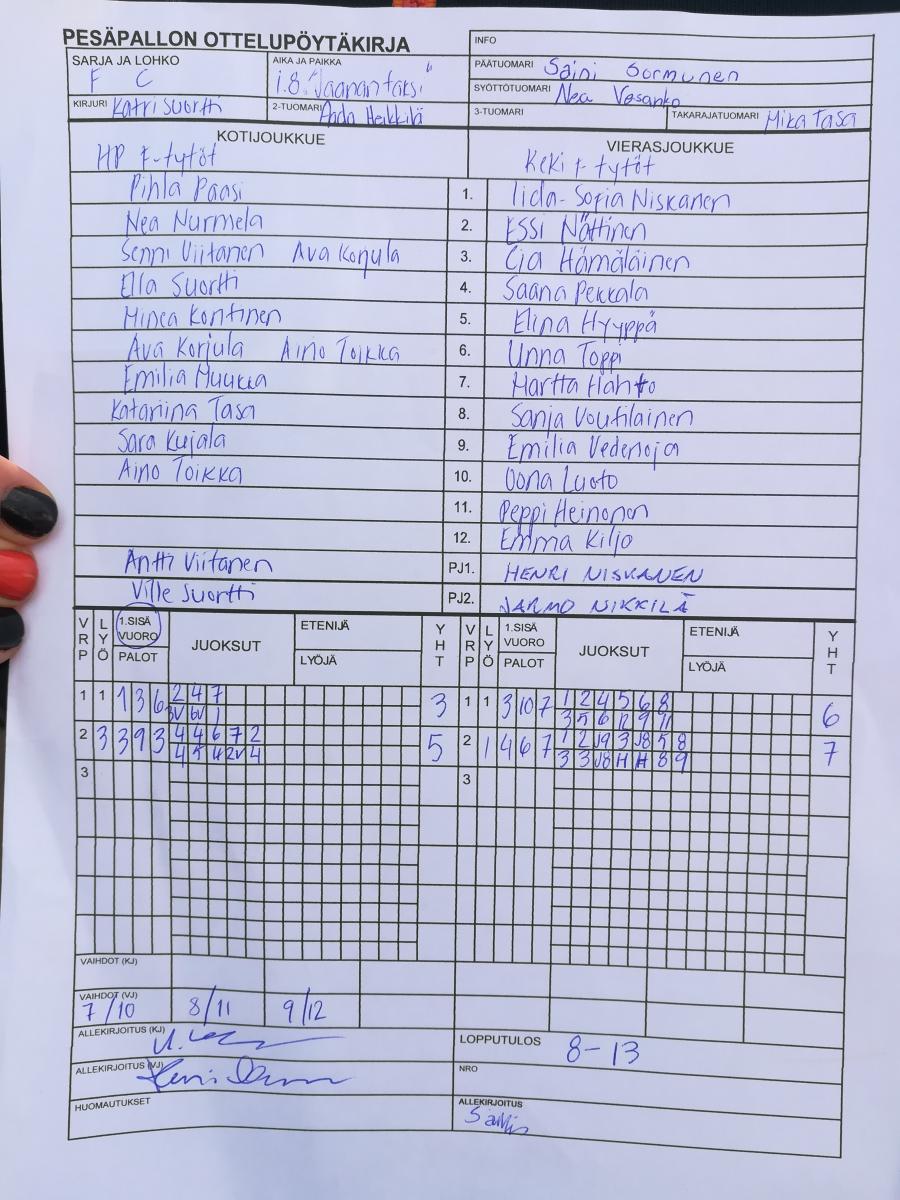 PESÄPALLON OTTELUPÖYTÄKIRJA
INFO
SARJA JA LOHKO
F C
AIKA JA PAIKKA
1.8. "Jaanan taksi"
PÄÄTUOMARI Saini Sormunen
SYÖTTÖTUOMARI Nea Vesanko
KIRJURI Katri Suortti
2-TUOMARI Heikkilä
3-TUOMARI
TAKARAJATUOMARI Mika Tasa
KOTIJOUKKUE
HP F-tytöt
VIERASJOUKKUE
KeKi F-tytöt
Pihla Paasi 1. Iida-Sofia Niskanen
Nea Nurmela 2. Essi Nättinen
Senni Viitanen Ava Korjula 3. Cia Hämäläinen
Ella Suortti 4. Saana Pekkala
Minea Kontinen 5. Elina Hyyppä
Ava Korjula Aino Toikka 6. Unna Toppi
Emilia Muukka 7. Martta Hahto
Katariina Tasa 8. Sanja Voutilainen
Sara Kujala 9. Emilia Vedenoja
Aino Toikka 10. Oona Luoto
11. Peppi Heinonen
12. Emma Kiljo
Antti Viitanen PJ1. HENRI NISKANEN
Ville Suortti PJ2. JARMO NIKKILÄ
VRP LYÖ 1.SISÄ VUORO PALOT JUOKSUT ETENIJÄ LYÖJÄ YHT VRP LYÖ 1.SISÄ VUORO PALOT JUOKSUT ETENIJÄ LYÖJÄ YHT
1 1 1 3 6 2 4 7 3 1 1 3 10 7 1 2 4 5 6 8 6
3V 6V 1 3 5 6 12 9 11
2 3 3 9 3 4 4 6 7 2 5 2 1 4 6 7 1 2 J9 3 J8 5 8 7
4 5 4 2V 4 3 3 J8 H H 8 9
3 3
VAIHDOT (KJ)
VAIHDOT (VJ)
7/10 8/11 9/12
ALLEKIRJOITUS (KJ)
LOPPUTULOS 8-13
ALLEKIRJOITUS (VJ)
NRO
HUOMAUTUKSET
ALLEKIRJOITUS